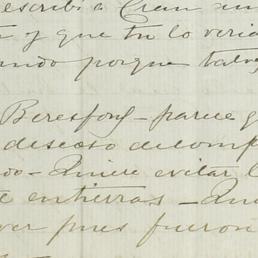 escribi a Cran
y que tu lo veria
ndo porque talv
Beresford - parece q
deseoso decomp
oo - Quiere evitar l
e entierras - Qu
ver pues fueron